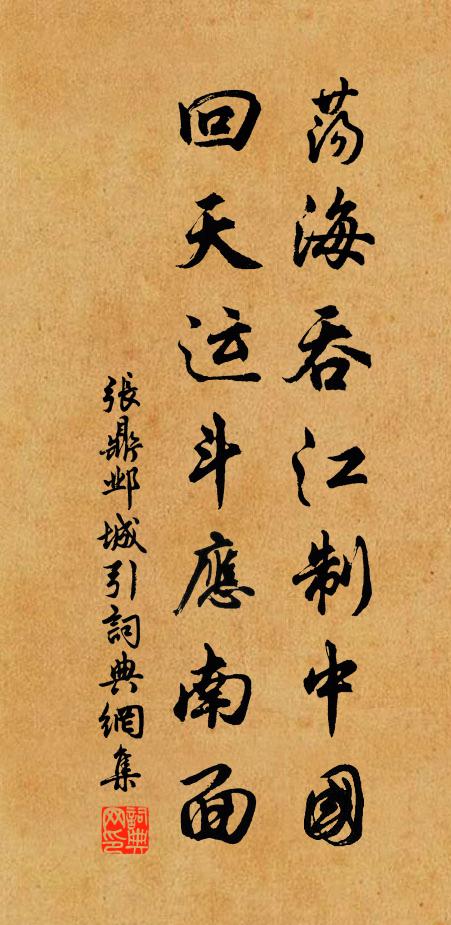 荡海吞江制中國
回天运斗應南面
張鼎邺城引詞典網集
詞典网印